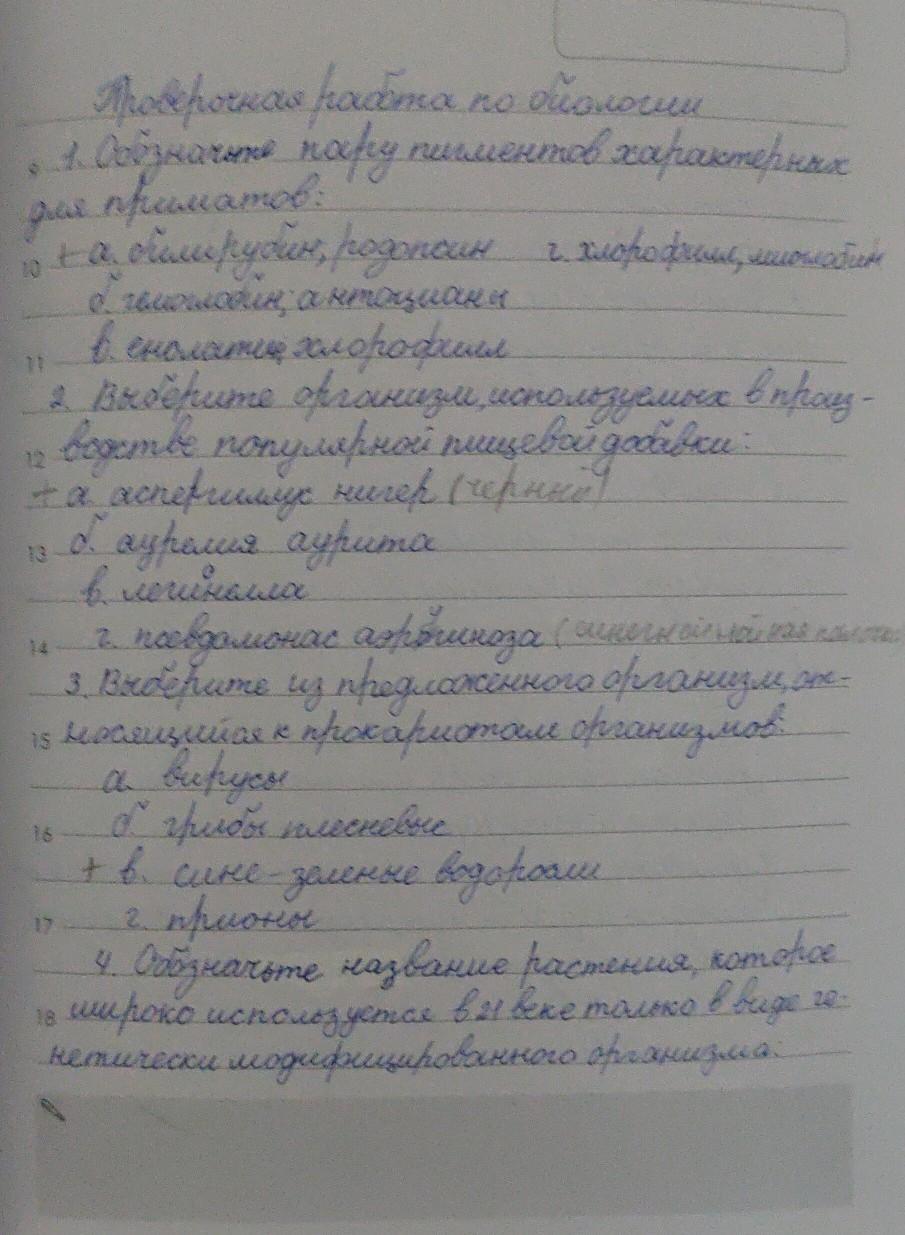 Проверочная работа по биологии
1. Обозначьте пару пигментов характерных
для приматов:
10 + а. билирубин, родопсин г. хлорофилл, миоглобин
б. гемоглобин, антоцианы
11 в. хлорофилл
2. Выберите организм, используемых в произ-
12 водстве популярной пищевой добавки:
+ а аспергиллус нигер (черный)
13 б. аурелия аурита
в. легионелла
14 г. псевдомонас аэрогиноза
3. Выберите из предложенного организм, от-
15 носящийся к прокариотам организмов:
а. вирусы
16 б грибы плесневые
+ в. сине-зеленые водоросли
17 г. прионы
4. Обозначьте название растения, которое
18 широко используется в 21 веке только в виде ге-
нетически модифицированного организма: